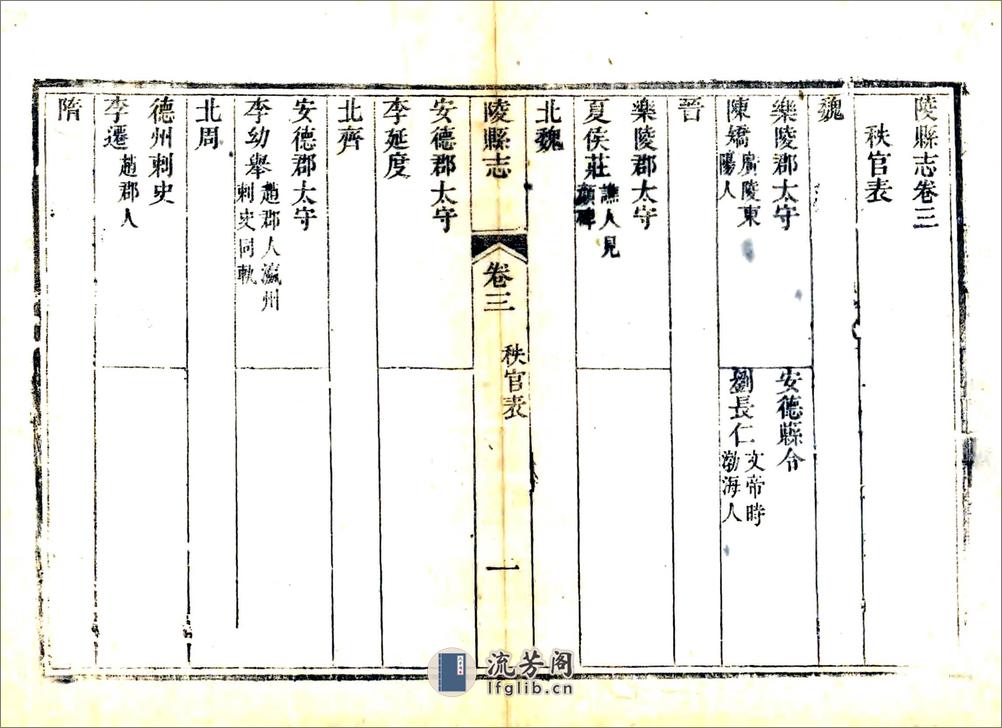 陵縣志卷三
秩官表
魏
樂陵郡太守
陳矯廣陵東
陽人
安德縣令
劉長仁文帝時
渤海人
晉
樂陵郡太守
夏侯莊譙人見
顏碑
北魏
陵縣志
卷三
秩官表
一
安德郡太守
李延度
北齊
安德郡太守
李幼舉趙郡人瀛州
刺史同軌
北周
德州刺史
李遷趙郡人
隋
流芳阁
lfglib.cn